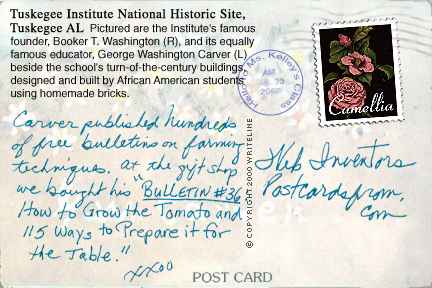 Tuskegee Institute National Historic Site,
Tuskegee AL Pictured are the Institute's famous
founder, Booker T. Washington (R), and its equally
famous educator, George Washington Carver (L)
beside the school's turn-of-the-century buildings,
designed and built by African American students
using homemade bricks.
Carver published hundreds
of free bulletins on farming
techniques. At the gift shop
we bought his "BULLETIN #36
How to Grow the Tomato and
115 Ways to Prepare it for
the Table."
xxoo
© COPYRIGHT 2000 WRITELINE
Hello to Ms. Kelley's Class
AM
Camellia
Web Inventors
Postcardsfrom.
com
POST CARD